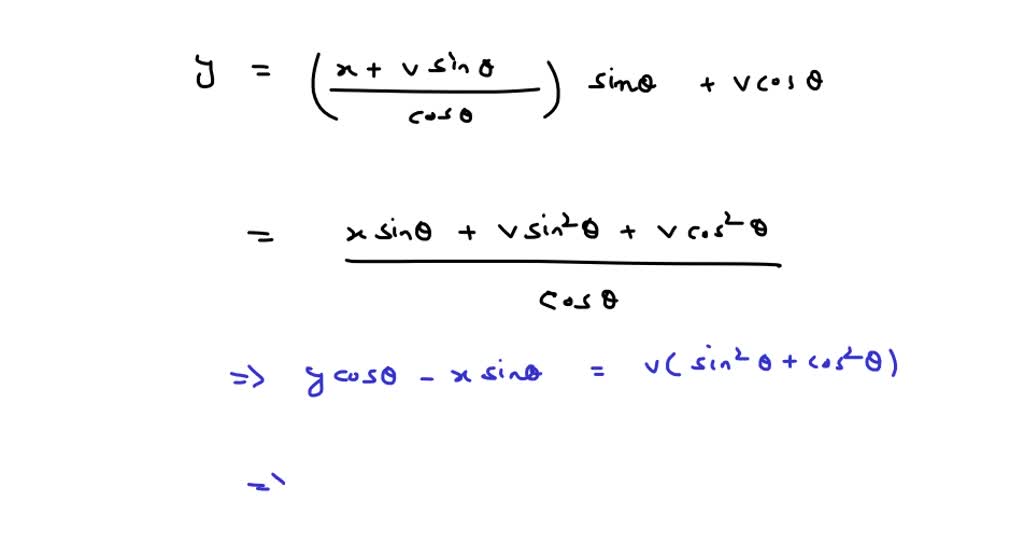 y = (x + v sinθ / cosθ) sinθ + v cosθ
= x sinθ + v sin²θ + v cos²θ / cosθ
=> y cosθ - x sinθ = v( sin²θ + cos²θ)
=>